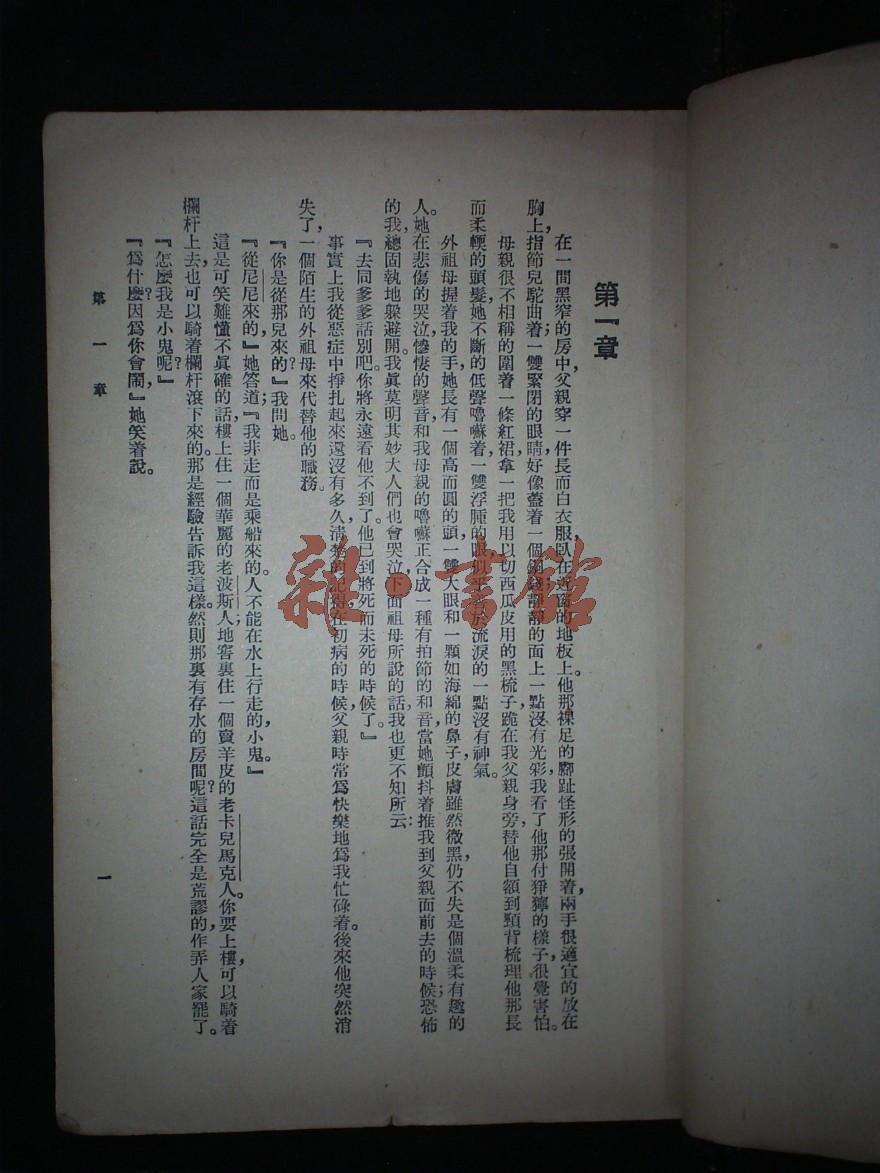 第一章
在一間黑窄的房中，父親穿一件長而白衣服，臥在近窗的地板上。他那裸足的腳趾怪形的張開着，兩手很適宜的放在
胸上，指節兒駝曲着；一雙緊閉的眼睛，好像蓋着一個銅錢；靜靜的面上一點沒有光彩，我看了他那付猙獰的樣子，很覺害怕。
母親很不相稱的圍着一條紅裙，拿一把我用以切西瓜皮用的黑梳子，跪在我父親身旁，替他自額到頸背梳理他那長
而柔輭的頭髮，她不斷的低聲嚕囌着，一雙浮腫的眼，似乎 於流淚的一點沒有神氣。
外祖母握着我的手，她長有一個高而圓的頭，一雙大眼，和一顆如海綿的鼻子，皮膚雖然微黑，仍不失是個溫柔有趣的
人。她在悲傷的哭泣，悽悽的聲音和我母親的嚕囌正合成一種有拍節的和音，當她顫抖着推我到父親面前去的時候；恐怖
的我，總固執地躲避開。我眞莫明其妙大人們也會哭泣，下面祖母所說的話，我也更不知所云：
『去同爹爹話別吧。你將永遠看他不到了。他已到將死而未死的時候了。』
事實上我從惡症中掙扎起來還沒有多久，淸楚的記得在初病的時候，父親時常爲快樂地爲我忙碌着。後來他突然消
失了，一個陌生的外祖母來代替他的職務。
『你是從那兒來的？』我問她。
『從尼尼來的，』她答道；『我非走而是乘船來的。人不能在水上行走的，小鬼。』
這是可笑難懂不眞確的話，樓上住一個華麗的老波斯人；地窖裏住一個賣羊皮的老卡兒馬克人。你要上樓，可以騎着
欄杆上去，也可以騎着欄杆滾下來的。那是經驗告訴我這樣。然則那裏有存水的房間呢？這話完全是荒謬的，作弄人家罷了。
『怎麼我是小鬼呢？』
『爲什麼？因爲你會鬧，』她笑着說。
第一章
一
雜·書館